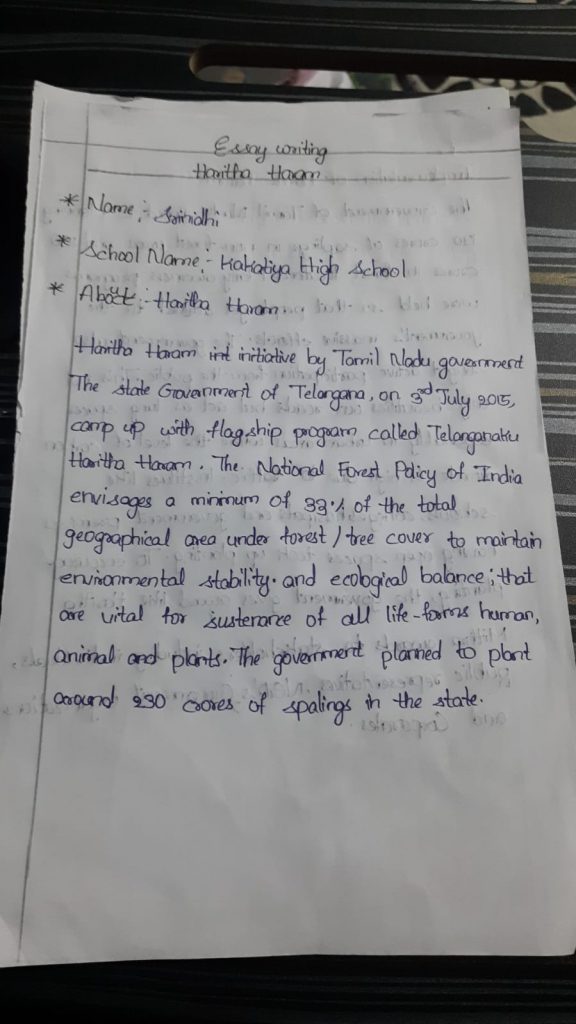 Essay writing
Haritha Haram
* Name :- Srinidhi
* School Name :- Kakatiya High School
* About :- Haritha Haram
Haritha Haram initiative by Tamil Nadu government
The state Government of Telangana, on 3rd July 2015,
camp up with flagship program called Telanganaku
Haritha Haram. The National Forest Policy of India
envisages a minimum of 33% of the total
geographical area under forest / tree cover to maintain
environmental stability. and ecological balance; that
are vital for sustenance of all life-forms human,
animal and plants. The government planned to plant
around 230 crores of spalings in the state.